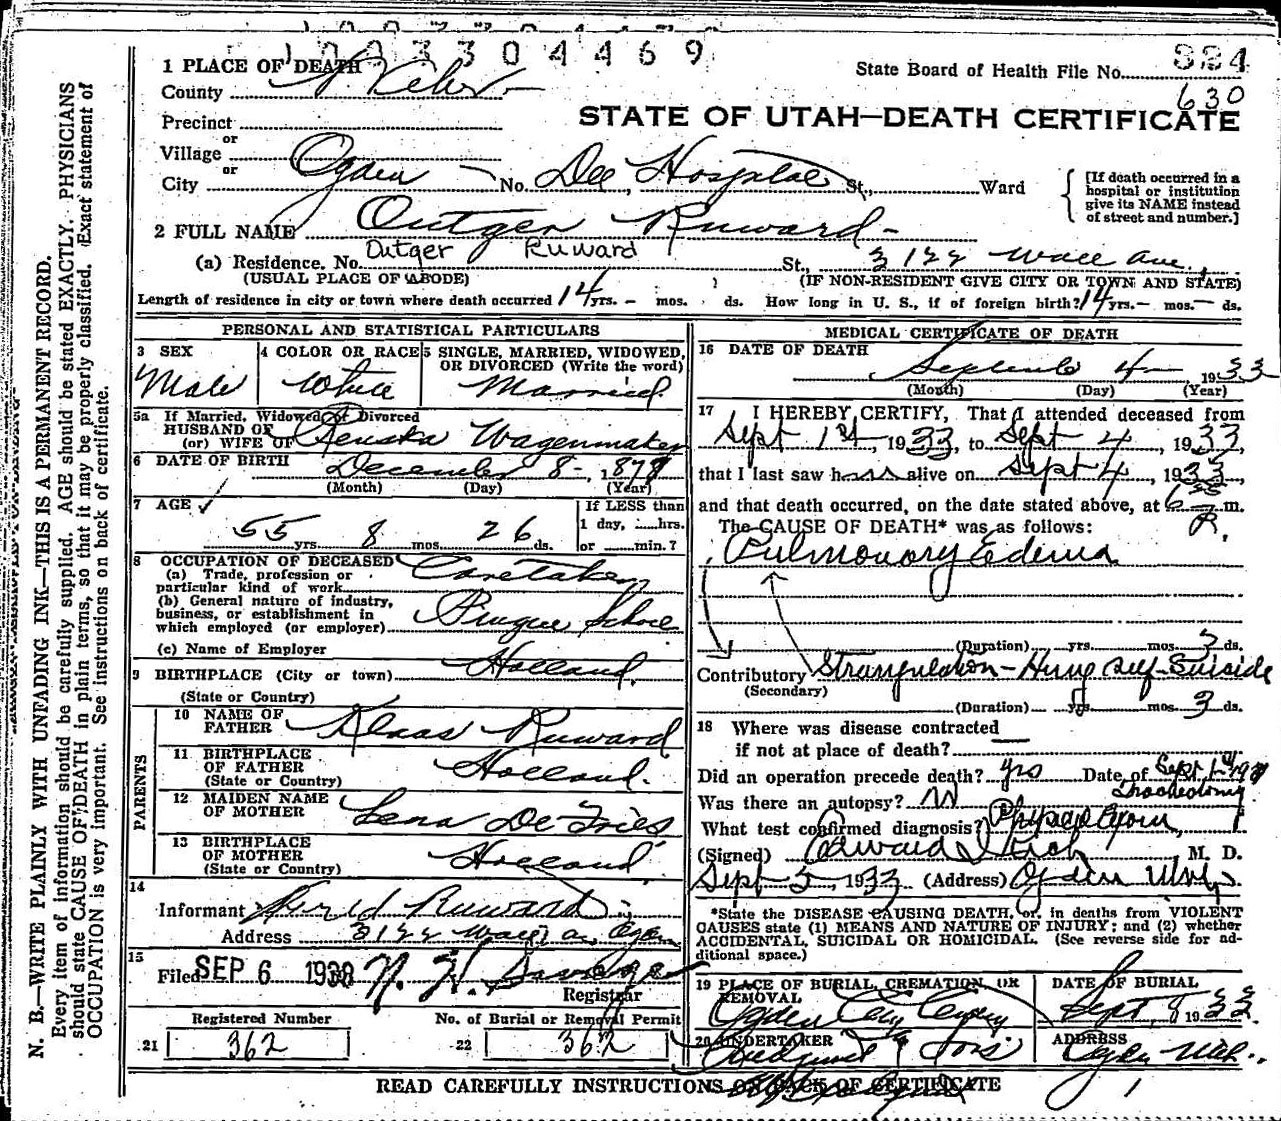 1003304469
1 PLACE OF DEATH
State Board of Health File No. 324
630
County Weber
STATE OF UTAH—DEATH CERTIFICATE
Precinct
or
Village
or
City Ogden No. Dee Hospital St., Ward
[If death occurred in a hospital or institution give its NAME instead of street and number.]
2 FULL NAME Outger Ruward
Outger Ruward
(a) Residence. No. St., 3122 Wall Ave.,
(USUAL PLACE OF ABODE) (IF NON-RESIDENT GIVE CITY OR TOWN AND STATE)
Length of residence in city or town where death occurred 14 yrs. – mos. ds. How long in U. S., if of foreign birth? 14 yrs. – mos. – ds.
PERSONAL AND STATISTICAL PARTICULARS
3 SEX
Male
4 COLOR OR RACE
White
5 SINGLE, MARRIED, WIDOWED, OR DIVORCED (Write the word)
Married
5a If Married, Widowed or Divorced
HUSBAND OF
(or) WIFE OF Renska Wagenmaker
6 DATE OF BIRTH December 8-, 187
(Month) (Day) (Year)
7 AGE
55 yrs. 8 mos. 26 ds.
If LESS than
1 day, hrs.
or min.?
8 OCCUPATION OF DECEASED
(a) Trade, profession or particular kind of work Caretaker
(b) General nature of industry, business, or establishment in which employed (or employer) School
(c) Name of Employer
9 BIRTHPLACE (City or town) Holland.
(State or Country)
PARENTS
10 NAME OF FATHER Klaas Ruward
11 BIRTHPLACE OF FATHER Holland.
(State or Country)
12 MAIDEN NAME OF MOTHER Lena De Vries
13 BIRTHPLACE OF MOTHER Holland.
(State or Country)
14
Informant Ruward
Address 3122 Wall Ogden
15
Filed SEP 6 193 N. H. Savage
Registrar
Registered Number
21 362
No. of Burial or Removal Permit
22 362
MEDICAL CERTIFICATE OF DEATH
16 DATE OF DEATH
September 4 1933
(Month) (Day) (Year)
17 I HEREBY CERTIFY, That I attended deceased from
Sept 1st, 1933, to Sept 4, 1933,
that I last saw h alive on Sept 4, 1933
and that death occurred, on the date stated above, at 6 m.
P.
The CAUSE OF DEATH* was as follows:
Pulmonary Edema
(Duration) yrs. mos. 3 ds.
Contributory Strangulation – Hung self – Suicide
(Secondary)
(Duration) yrs. mos. 3 ds.
18 Where was disease contracted
if not at place of death?
Did an operation precede death? yes Date of Sept 1st 193
Tracheotomy
Was there an autopsy?
What test confirmed diagnosis? Physical Exam
(Signed) Edward I Rich M. D.
Sept 5, 1933 (Address) Ogden Utah
*State the DISEASE CAUSING DEATH, or, in deaths from VIOLENT CAUSES state (1) MEANS AND NATURE OF INJURY; and (2) whether ACCIDENTAL, SUICIDAL OR HOMICIDAL. (See reverse side for additional space.)
19 PLACE OF BURIAL, CREMATION, OR REMOVAL
Ogden City Cemetery
DATE OF BURIAL
Sept, 8 1933.
20 UNDERTAKER
Lindquist & Sons
ADDRESS
Ogden Utah.
READ CAREFULLY INSTRUCTIONS ON BACK OF CERTIFICATE
N. B.—WRITE PLAINLY WITH UNFADING INK—THIS IS A PERMANENT RECORD.
Every item of information should be carefully supplied. AGE should be stated EXACTLY. PHYSICIANS
should state CAUSE OF DEATH in plain terms, so that it may be properly classified. Exact statement of
OCCUPATION is very important. See instructions on back of certificate.